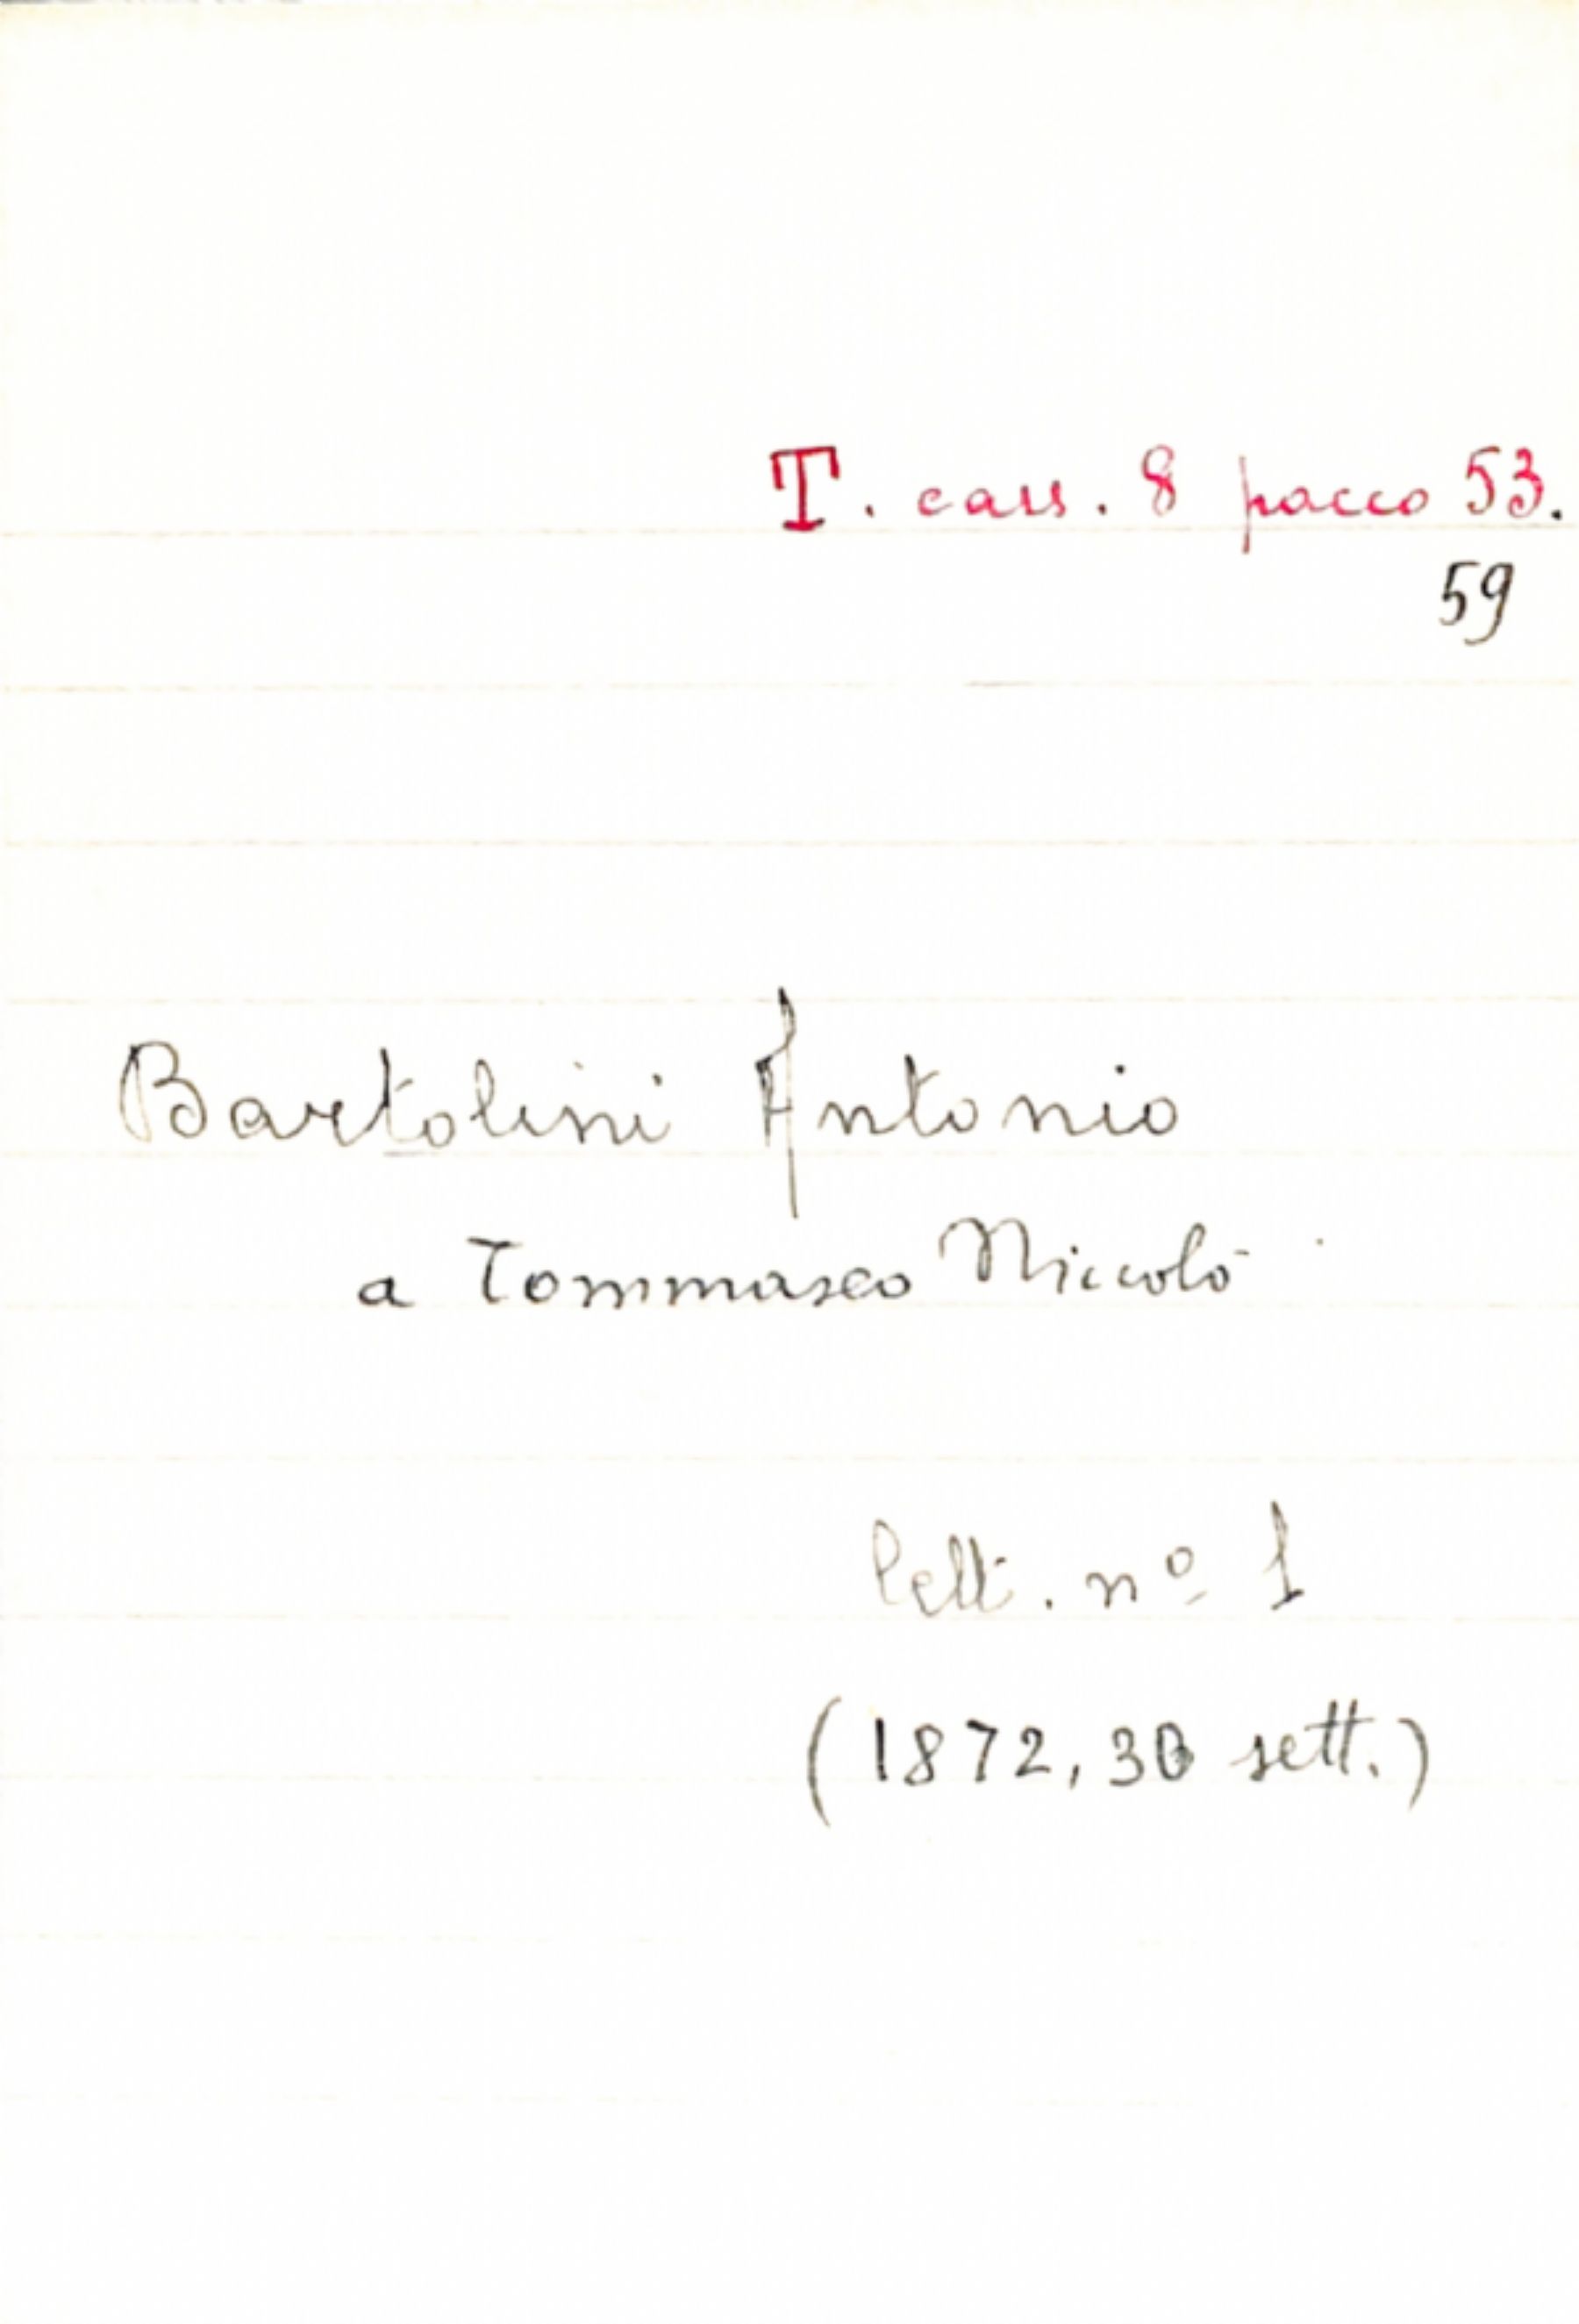 T. cass. 8 pacco 53.
59
Bartolini Antonio
a Tommaseo Niccolò
lett. nº 1
(1872, 30 sett.)